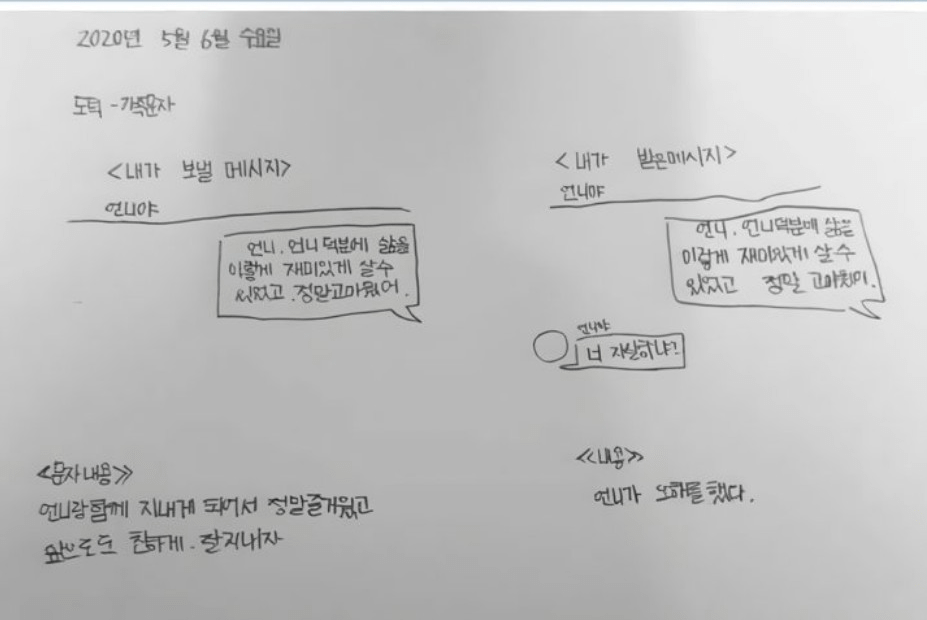 2020년 5월 6일 수요일
도덕 - 가족문자
<내가 보낼 메시지>
언니야
언니. 언니 덕분에 삶을
이렇게 재미있게 살수
있었고. 정말고마웠어.
<내가 받은메시지>
언니야
언니. 언니덕분에 삶을
이렇게 재미있게 살수
있었고 정말 고마웠어.
언니야
너 자살하냐?
<<문자내용>>
언니랑함께 지내게 되어서 정말즐거웠고
앞으로도 친하게. 잘지내자
<<내용>>
언니가 오해를 했다.